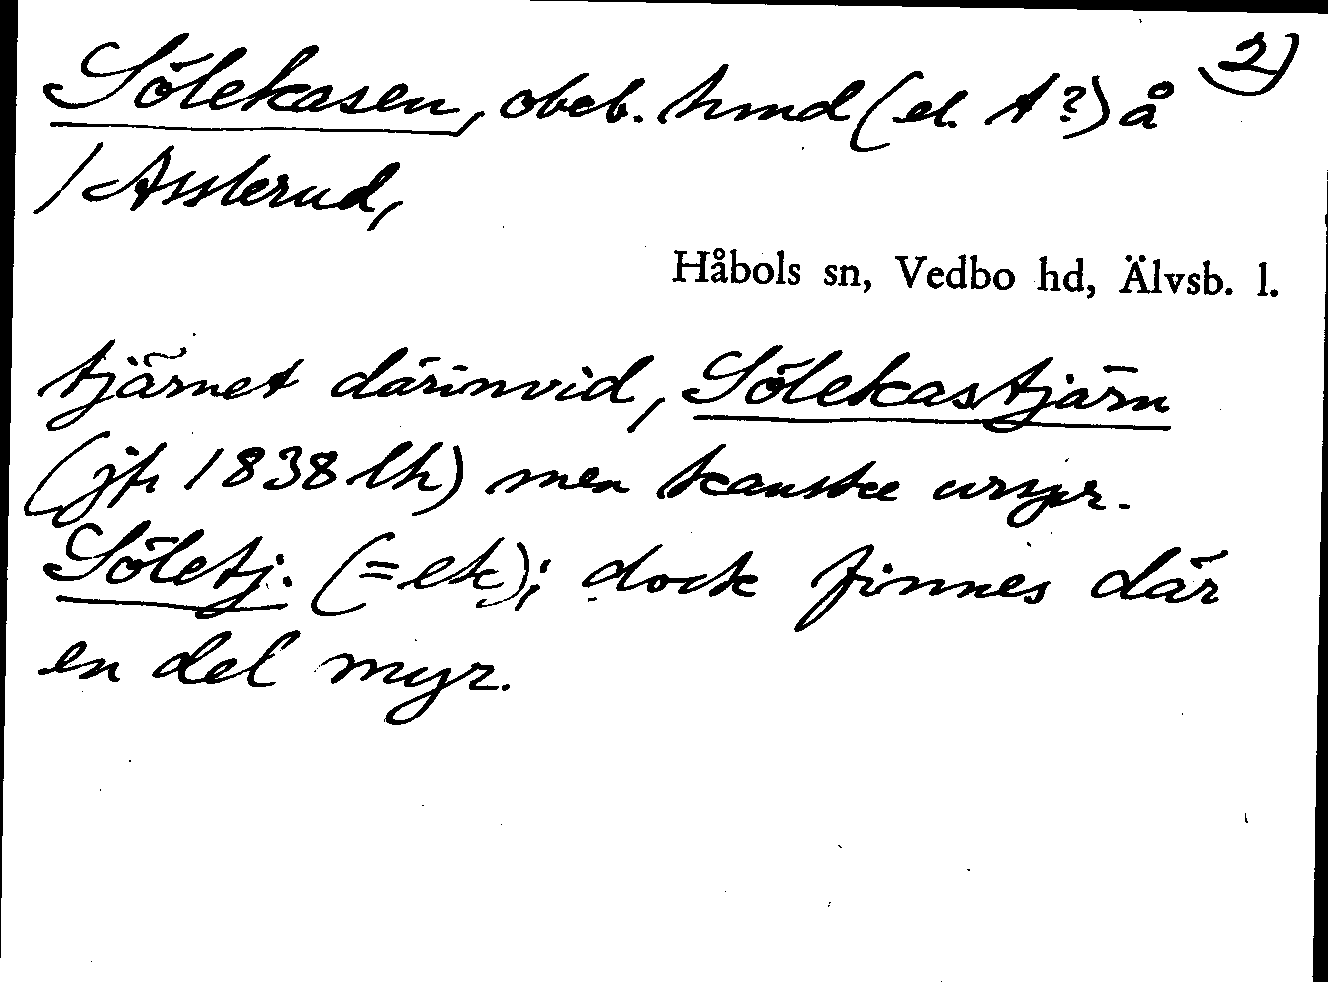 Sölekasen, obeb. hmd (el. t?) å 2)
1 Asslerud,
Håbols sn, Vedbo hd, Älvsb. l.
tjärnet därinvid, Sölekastjärn
(jfr 1838 lh) men kanske urspr.
Söletj. (=ek); dock finnes där
en del myr.